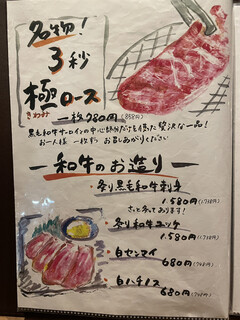 名物!
3秒
極ロース
きわみ
一枚780円(858円)
黒毛和牛サーロインの中心部分だけを使った贅沢な一品!
お一人様 一枚ずつ お召しあがりください
和牛のお造り
炙り黒毛和牛刺身
1,580円(1738円)
さっと炙っております!
炙り和牛ユッケ
1,580円(1738円)
白センマイ
680円(748円)
白ハチノス
680円(748円)